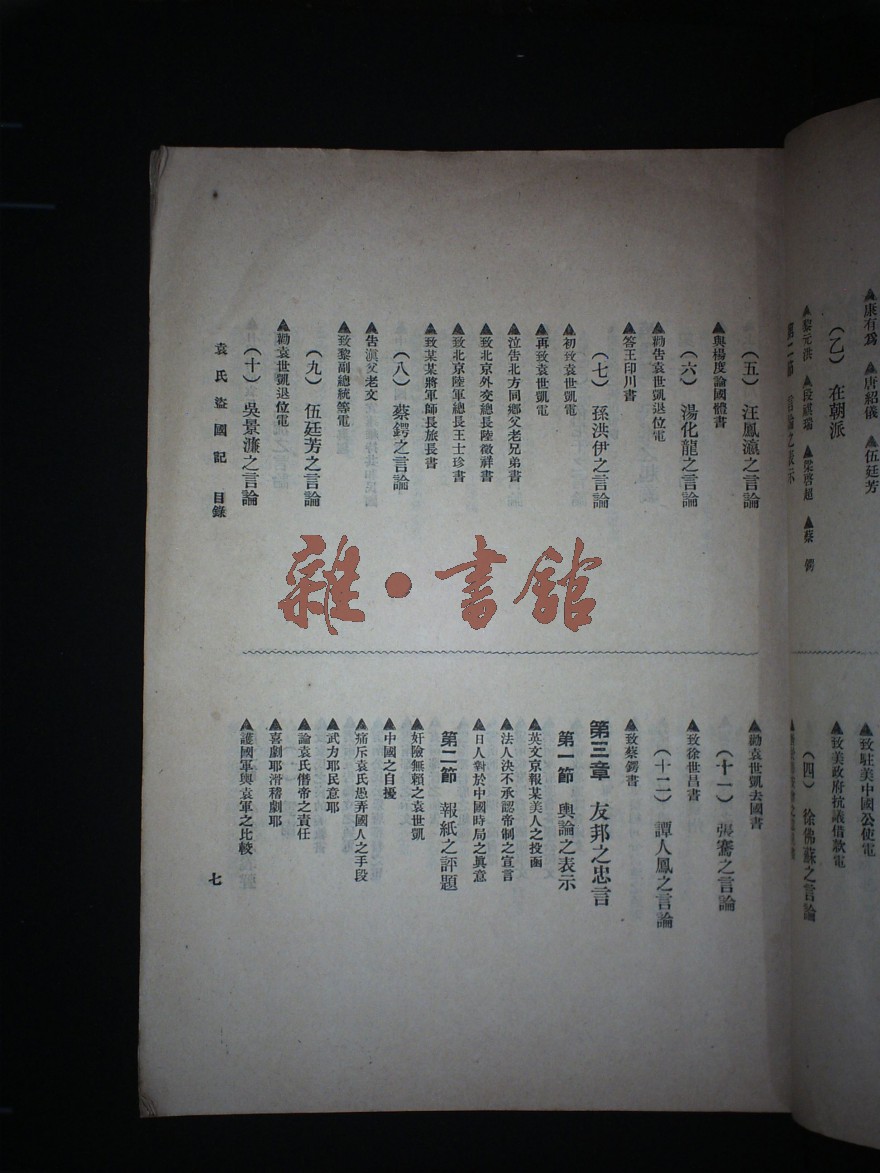 ▲康有爲　▲唐紹儀　▲伍廷芳
（乙）在朝派
▲黎元洪　▲段祺瑞　▲梁啓超　▲蔡　鍔
第二節　言論之表示
▲致駐美中國公使電
▲致美政府抗議借款電
（四）徐佛蘇之言論
（五）汪鳳瀛之言論
▲與楊度論國體書
（六）湯化龍之言論
▲勸告袁世凱退位電
▲答王印川書
（七）孫洪伊之言論
▲初致袁世凱電
▲再致袁世凱電
▲泣告北方同鄉父老兄弟書
▲致北京外交總長陸徵祥書
▲致北京陸軍總長王士珍書
▲致某某將軍師長旅長書
（八）蔡鍔之言論
▲告滇父老文
▲致黎副總統等電
（九）伍廷芳之言論
▲勸袁世凱退位電
（十）吳景濂之言論
▲勸袁世凱去國書
（十一）張謇之言論
▲致徐世昌書
（十二）譚人鳳之言論
▲致蔡鍔書
第三章　友邦之忠言
第一節　輿論之表示
▲英文京報某美人之投函
▲法人決不承認帝制之宣言
▲日人對於中國時局之眞意
第二節　報紙之評題
▲奸險無賴之袁世凱
▲中國之自擾
▲痛斥袁氏愚弄國人之手段
▲武力耶民意耶
▲論袁氏僭帝之責任
▲喜劇耶滑稽劇耶
▲護國軍與袁軍之比較
袁氏盜國記　目錄
七
雜·書館